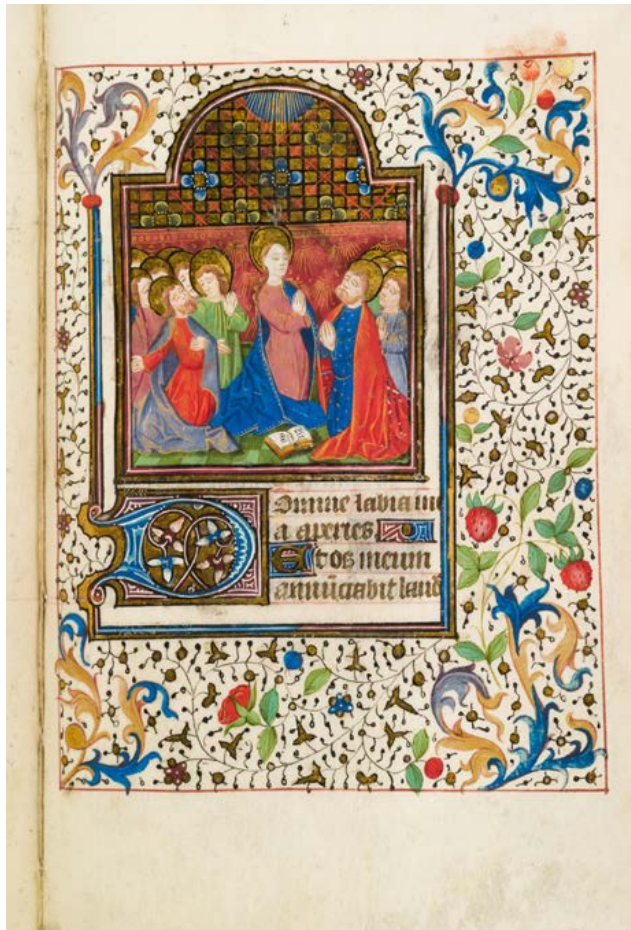 Domine labia me
a aperies
Et os meum
annūciabit laud